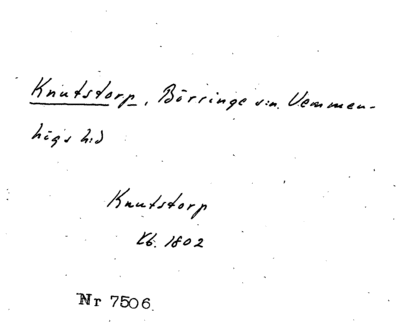 Knutstorp, Börringe s:n. Vemmen-
högs h:d
Knutstorp
Kb. 1802
Nr 7506